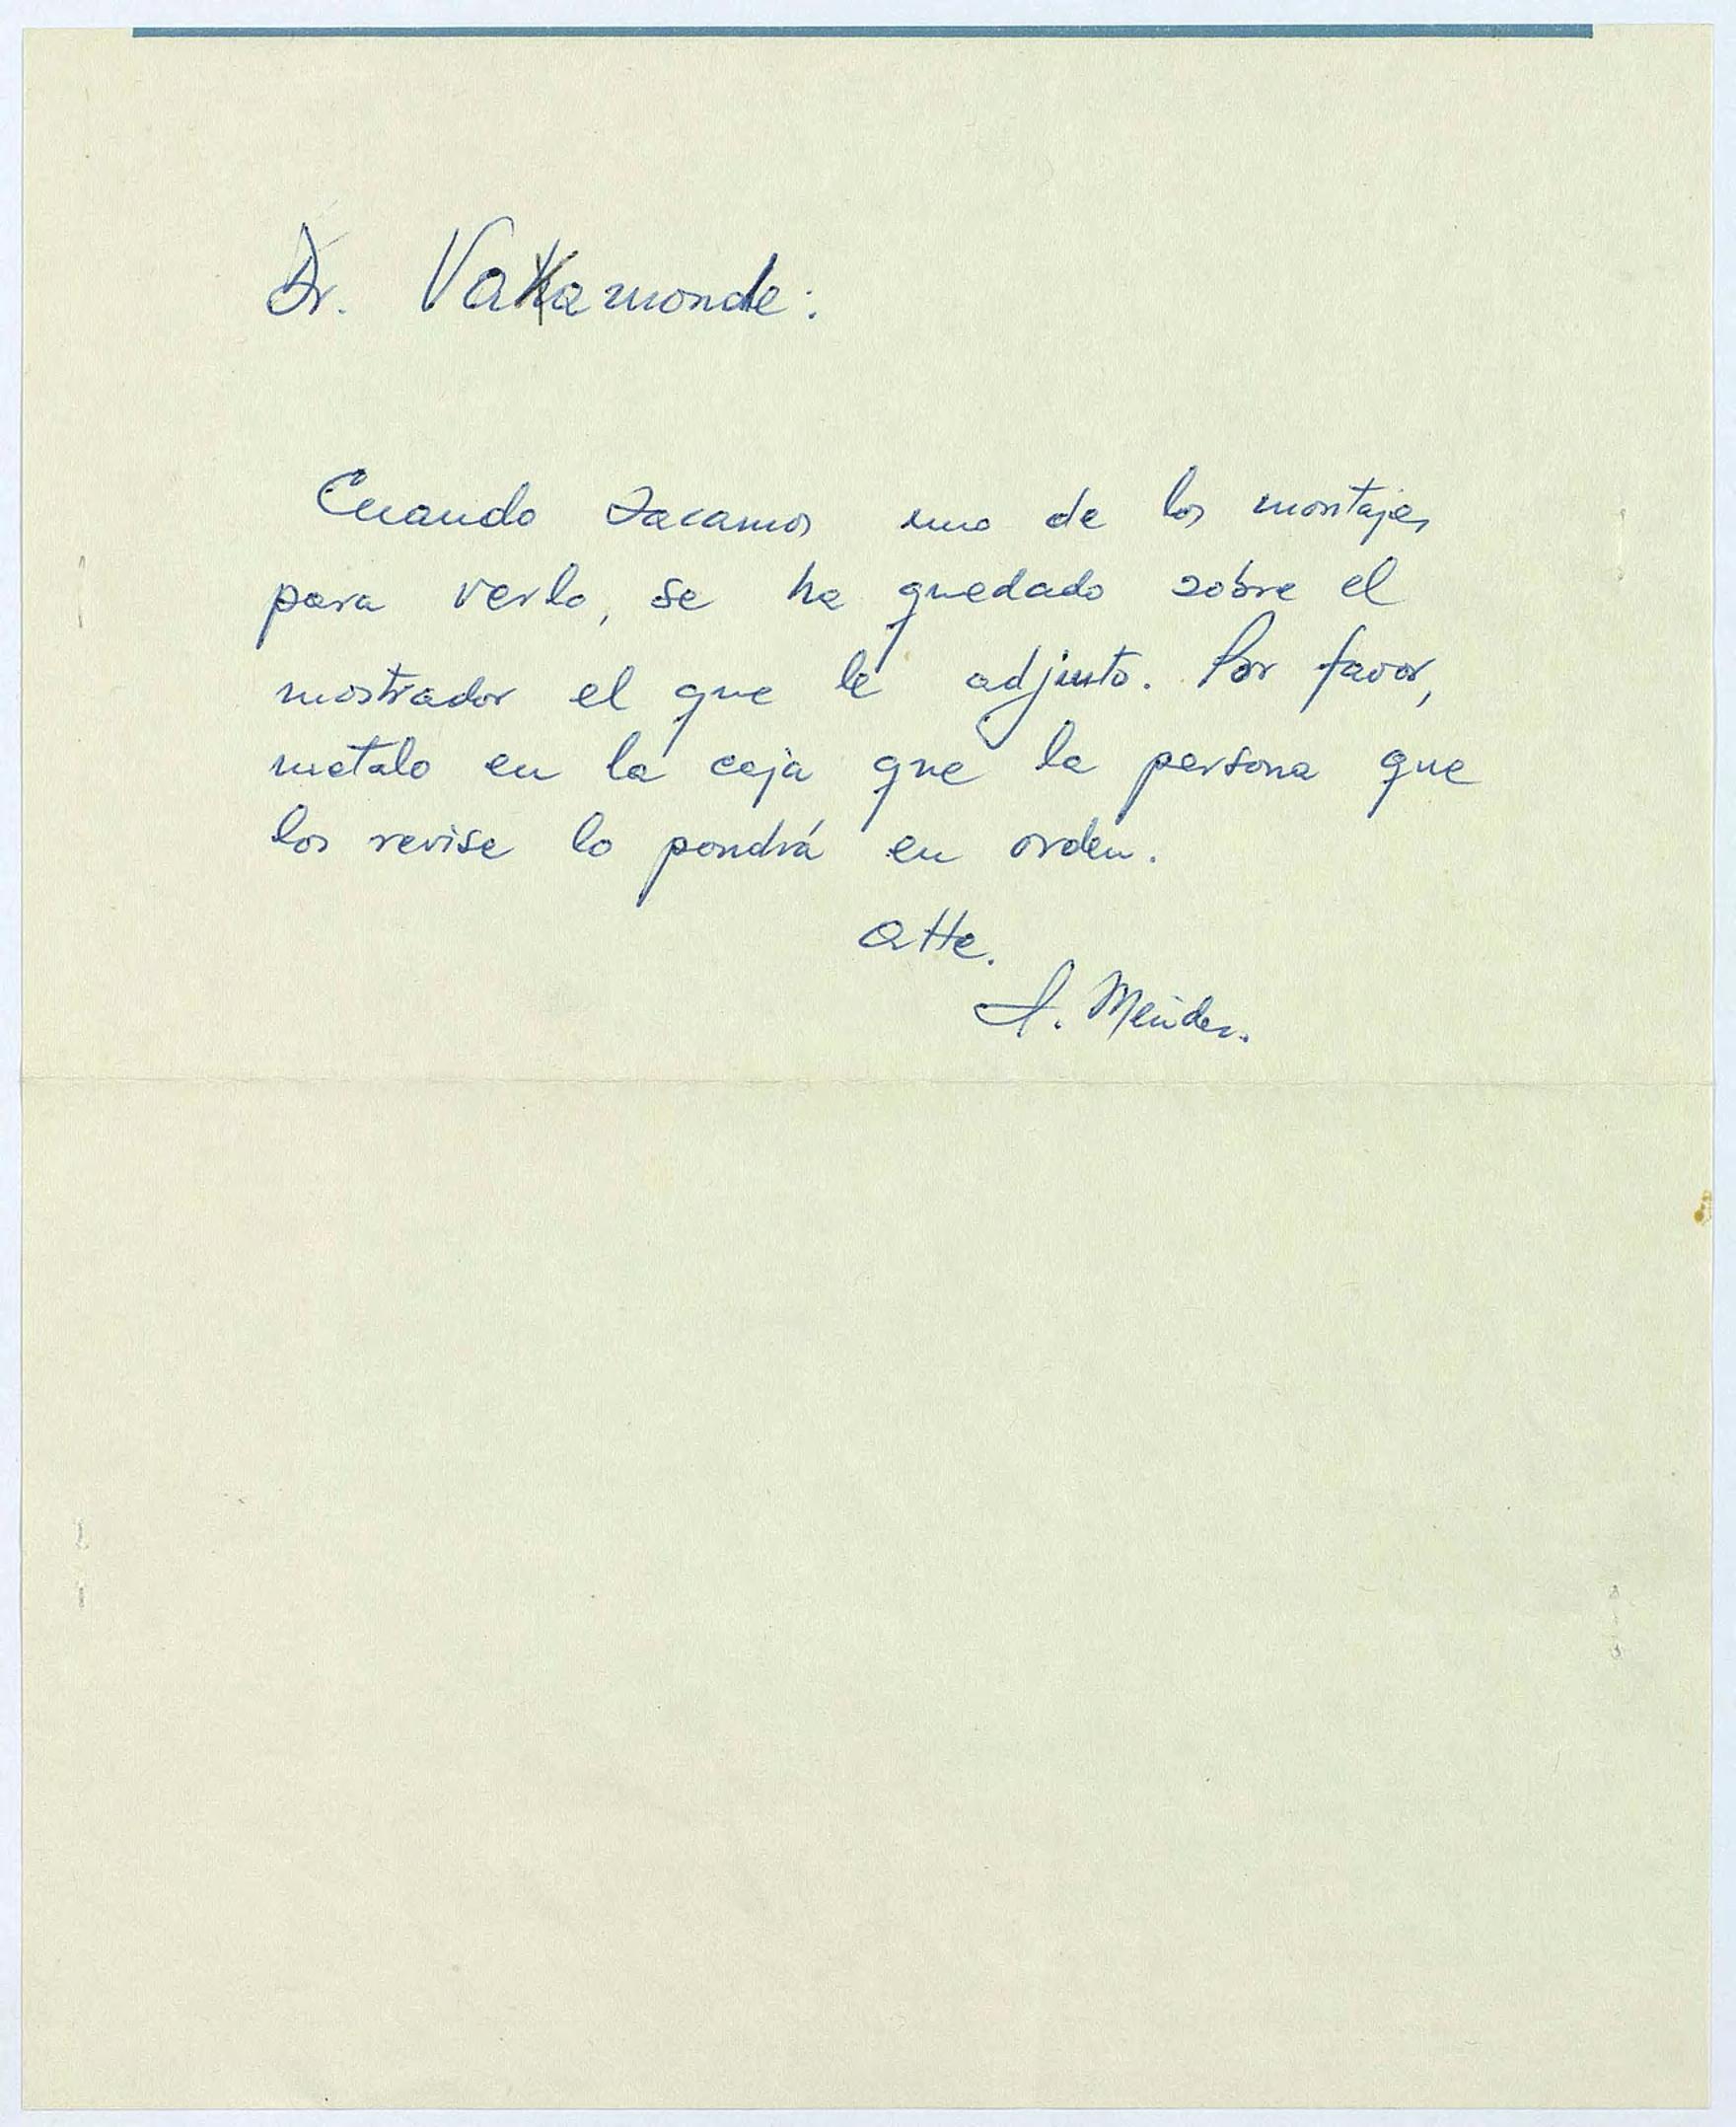 Dr. Vakamonde:
Cuando sacamos uno de los montajes
para verlo, se ha quedado sobre el
mostrador el que le adjunto. Por favor,
metalo en la caja que la persona que
los revise lo pondrá en orden.
Atte.
Méndez.